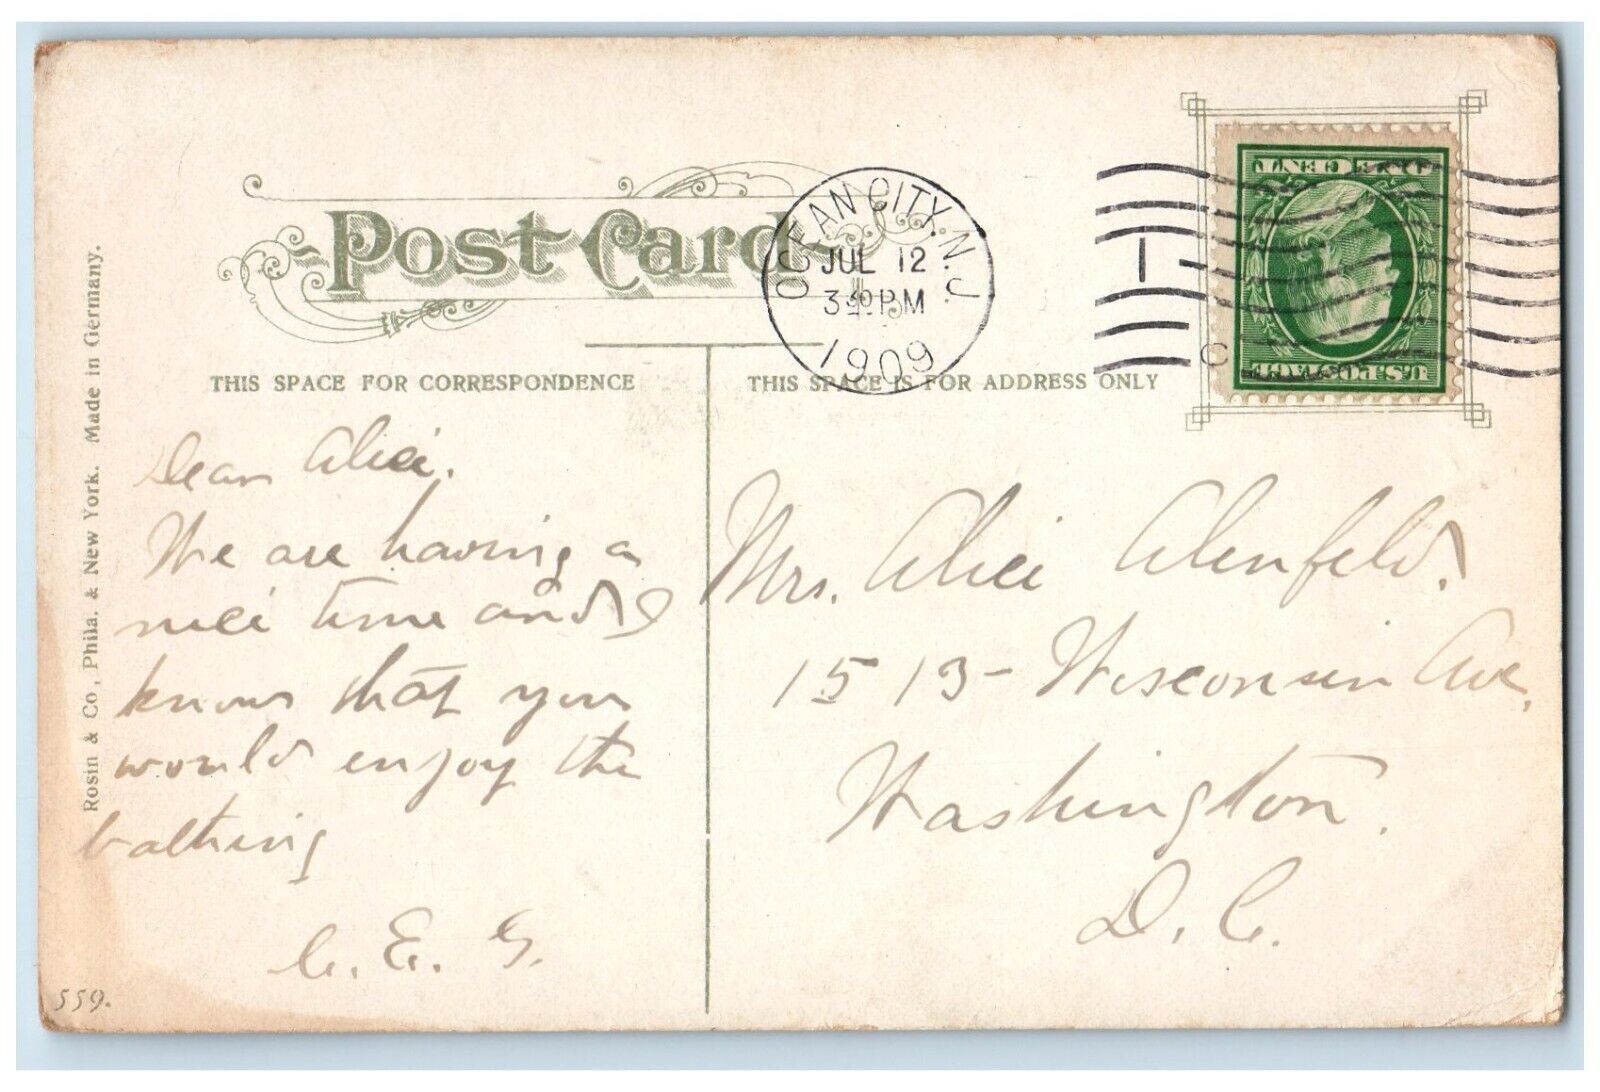 Post Card
OCEAN CITY, N.J.
JUL 12
3 30 PM
1909
C
ONE CENT
U.S. POSTAGE
THIS SPACE FOR CORRESPONDENCE
THIS SPACE IS FOR ADDRESS ONLY
Rosin & Co., Phila. & New York. Made in Germany.
Dear Alice.
We are having a
nice time and I
know that you
would enjoy the
bathing
C. E. G.
559.
Mrs. Alice Alenfeld.
1513 - Wisconsin Ave,
Washington.
D. C.